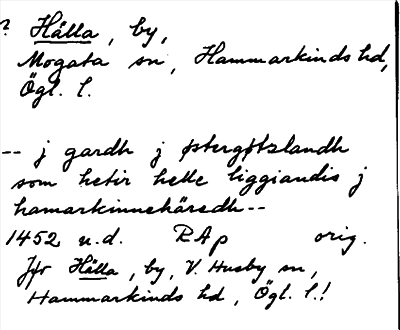 ? Hälla, by,
Mogata sn, Hammarkinds hd,
Ögl. l.
-- j gardh j østergøtzlandh
som hetir helle liggiandis j
hamarkinnehäredh --
1452 u.d. RAp orig.
Jfr Hälla, by, V. Husby sn,
Hammarkinds hd, Ögl. l.!